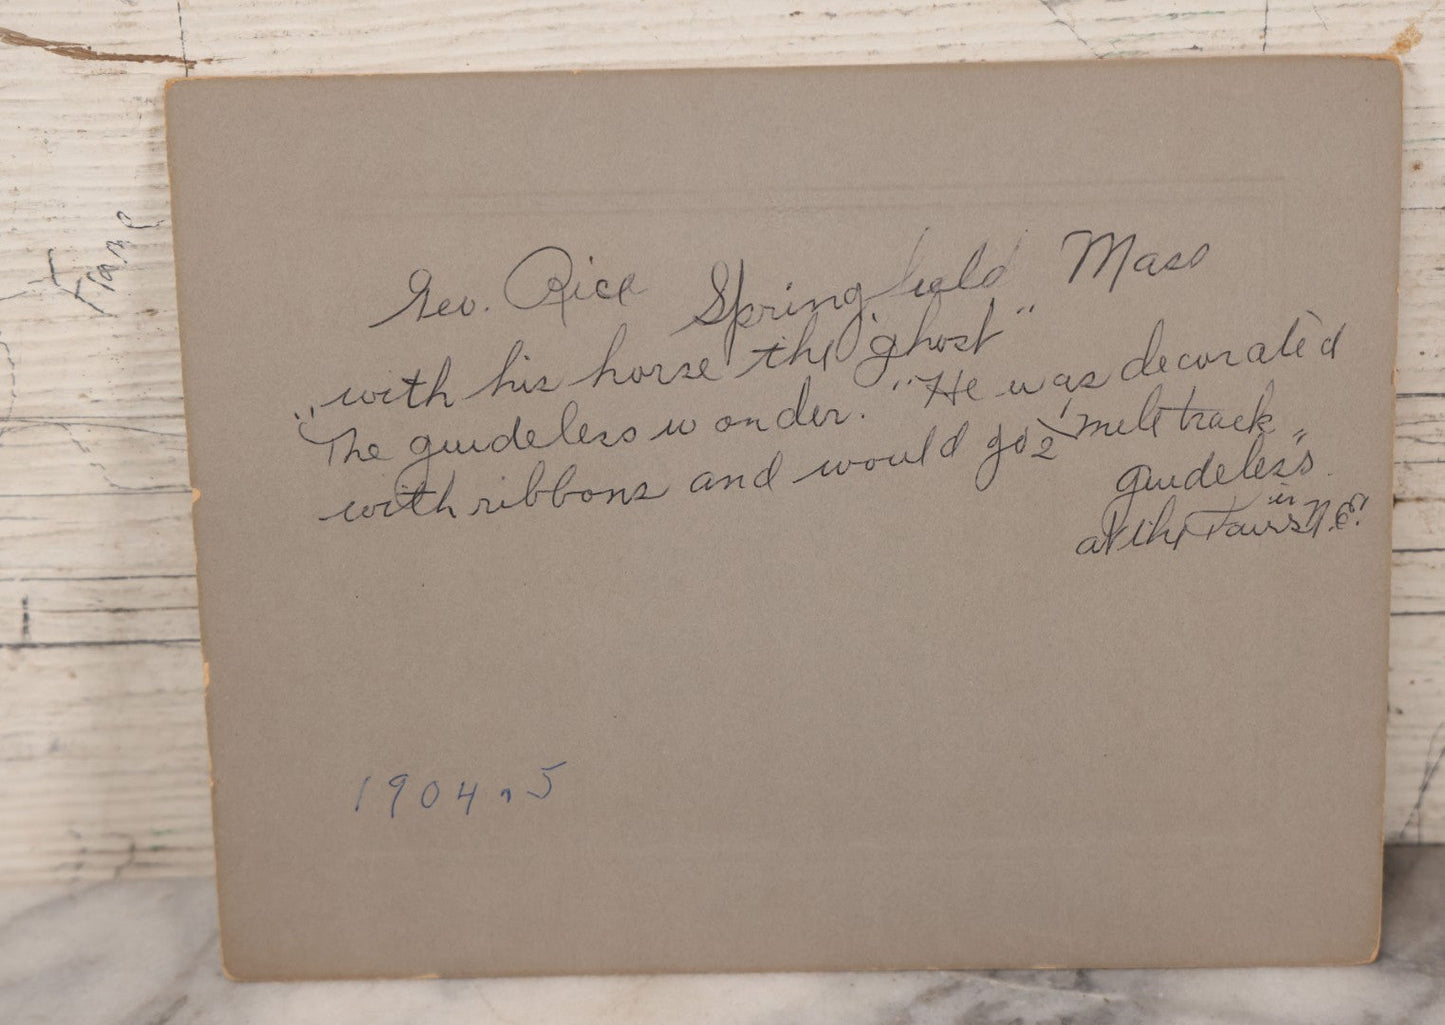 Geo. Rice Springfield Mass
with his horse the "ghost"
"The guideless wonder." He was decorated
with ribbons and would go 1/2 mile track
"guideless"
at the Fairs in N.E.
1904.5